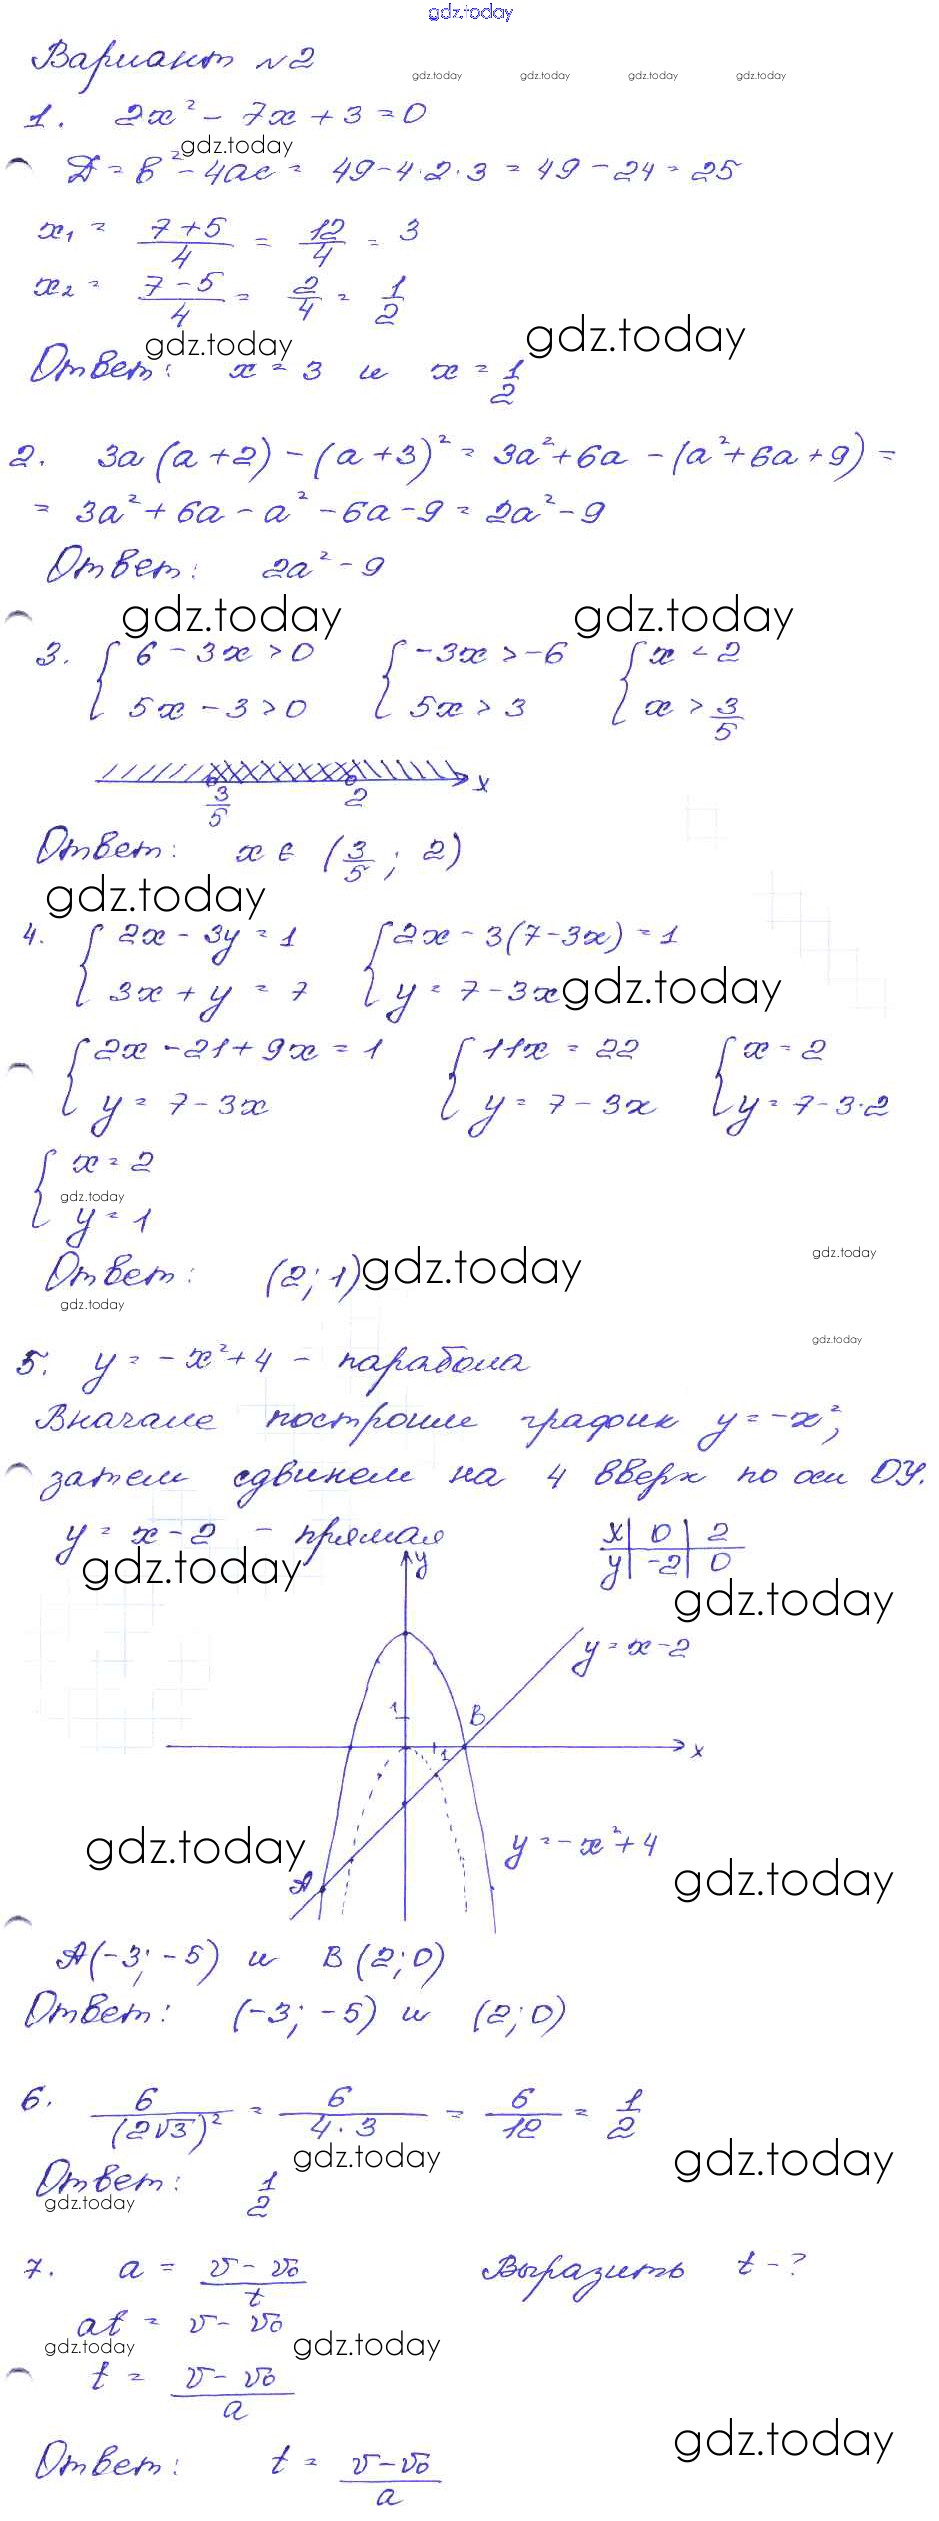 gdz.today
Вариант №2
gdz.today gdz.today gdz.today gdz.today
1. 2x² - 7x + 3 = 0
gdz.today
D = b² - 4ac = 49 - 4·2·3 = 49 - 24 = 25
x₁ = (7+5)/4 = 12/4 = 3
x₂ = (7-5)/4 = 2/4 = 1/2
gdz.today gdz.today
Ответ: x = 3 и x = 1/2
2. 3a(a+2) - (a+3)² = 3a² + 6a - (a² + 6a + 9) =
= 3a² + 6a - a² - 6a - 9 = 2a² - 9
Ответ: 2a² - 9
gdz.today gdz.today
3. { 6 - 3x > 0 { -3x > -6 { x < 2
5x - 3 > 0 5x > 3 x > 3/5
3/5 2 x
Ответ: x ∈ (3/5; 2)
gdz.today
4. { 2x - 3y = 1 { 2x - 3(7-3x) = 1
3x + y = 7 y = 7 - 3x gdz.today
{ 2x - 21 + 9x = 1 { 11x = 22 { x = 2
y = 7 - 3x y = 7 - 3x y = 7 - 3·2
{ x = 2
gdz.today
y = 1
gdz.today
Ответ: (2; 1) gdz.today
gdz.today
gdz.today
5. y = -x² + 4 - парабола
Вначале построим график y = -x²,
затем сдвинем на 4 вверх по оси OY.
y = x - 2 - прямая x | 0 | 2
gdz.today y | -2 | 0
gdz.today
y
y = x - 2
1 B
1 x
gdz.today y = -x² + 4
gdz.today
A
A(-3; -5) и B(2; 0)
Ответ: (-3; -5) и (2; 0)
6. 6/(2√3)² = 6/(4·3) = 6/12 = 1/2
gdz.today gdz.today
Ответ: 1/2
gdz.today
7. a = (v - v₀)/t Выразить t - ?
at = v - v₀
gdz.today gdz.today
t = (v - v₀)/a
gdz.today
Ответ: t = (v - v₀)/a